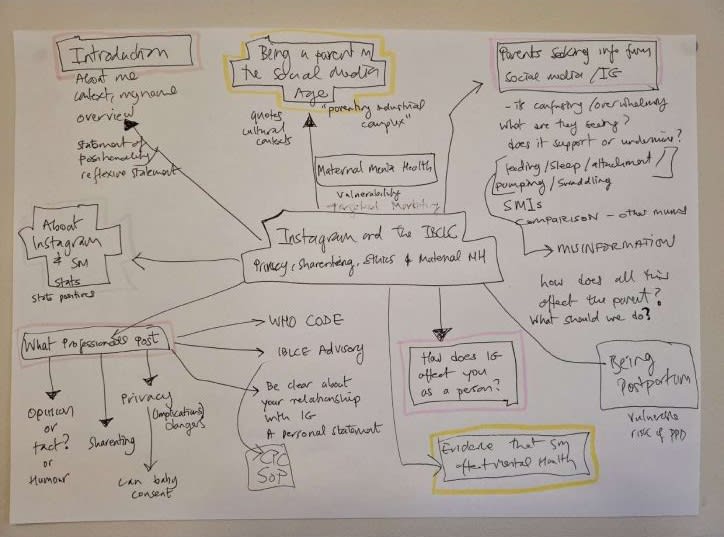 Introduction
About me
context, my name
overview
Statement of
positionality
reflexive statement
Being a parent in
the social media
Age
quotes
cultural
contexts
"parenting industrial
complex"
Parents seeking info from
social media / IG
- its confusing / overwhelming
what are they seeing?
does it support or undermine?
feeding / sleep / attachment /
pumping / swaddling
SMIs
COMPARISON - other mums
MISINFORMATION
how does all this
affect the parent?
What should we do?
Maternal Mental Health
Vulnerability
Targeted Marketing
Instagram and the IBCLC
Privacy, Sharenting, Ethics & Maternal MH
About
Instagram
& SM
Stats
stats positives
What Professionals Post
Opinion
or
fact?
or
Humour
Sharenting
Privacy
(Implications)
dangers
Can baby
consent
WHO CODE
IBLCE Advisory
Be clear about
your relationship
with IG
A personal statement
CPC
SoP
How does IG
affect you
as a person?
Evidence that SM
affect mental Health
Being
Postpartum
vulnerable
risk of PPD